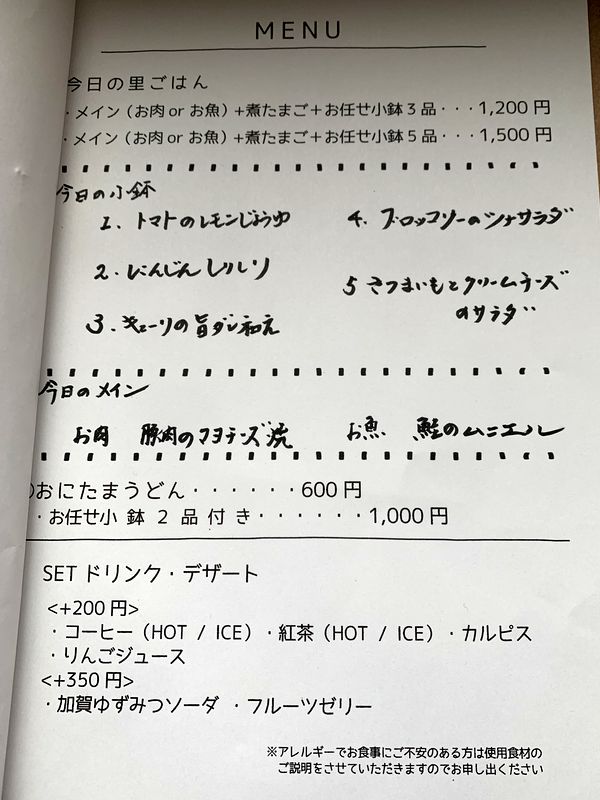 MENU
今日の里ごはん
・メイン（お肉 or お魚）+煮たまご＋お任せ小鉢３品・・・1,200 円
・メイン（お肉 or お魚）+煮たまご＋お任せ小鉢５品・・・1,500 円
今日の小鉢
1、トマトのレモンじょうゆ
2・にんじんしりしり
3．キューリの旨ダレ和え
4、ブロッコリーのツナサラダ
5 さつまいもとクリームチーズ
のサラダ
今日のメイン
お肉 豚肉のマヨチーズ焼
お魚 鮭のムニエル
のおにたまうどん・・・・・・600 円
・お任せ小 鉢 ２ 品 付 き・・・・・・1,000 円
SET ドリンク・デザート
<+200 円>
・コーヒー（HOT / ICE）・紅茶（HOT / ICE）・カルピス
・りんごジュース
<+350 円>
・加賀ゆずみつソーダ ・フルーツゼリー
※アレルギーでお食事にご不安のある方は使用食材の
ご説明をさせていただきますのでお申し出ください